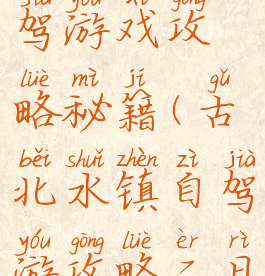 驾游戏攻
lüè mì jí gǔ
略秘籍(古
běi shuǐ zhèn zì jià
北水镇自驾
yóu gōng lüè èr rì
游攻略二日